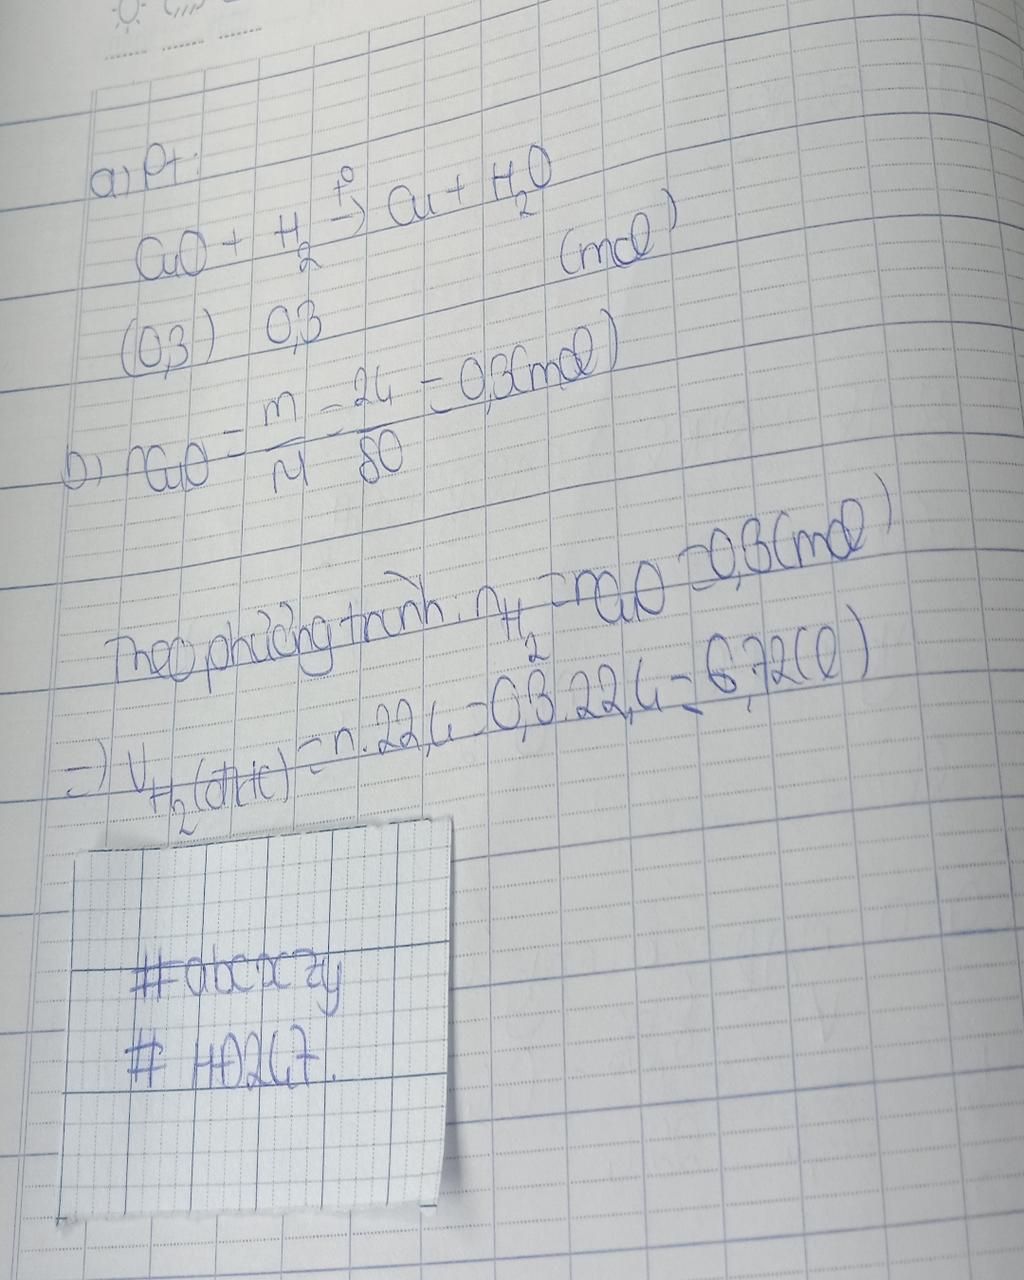 a) Pt:
CuO + H₂ t⁰→ Cu + H₂O
(0,3) 0,3 (mol)
b) nCuO = m/M = 24/80 = 0,3(mol)
Theo phương trình: nH₂ = nCuO = 0,3(mol)
=) VH₂(đktc) = n.22,4 = 0,3.22,4 = 6,72(l)
#abcxczy
# HD247.